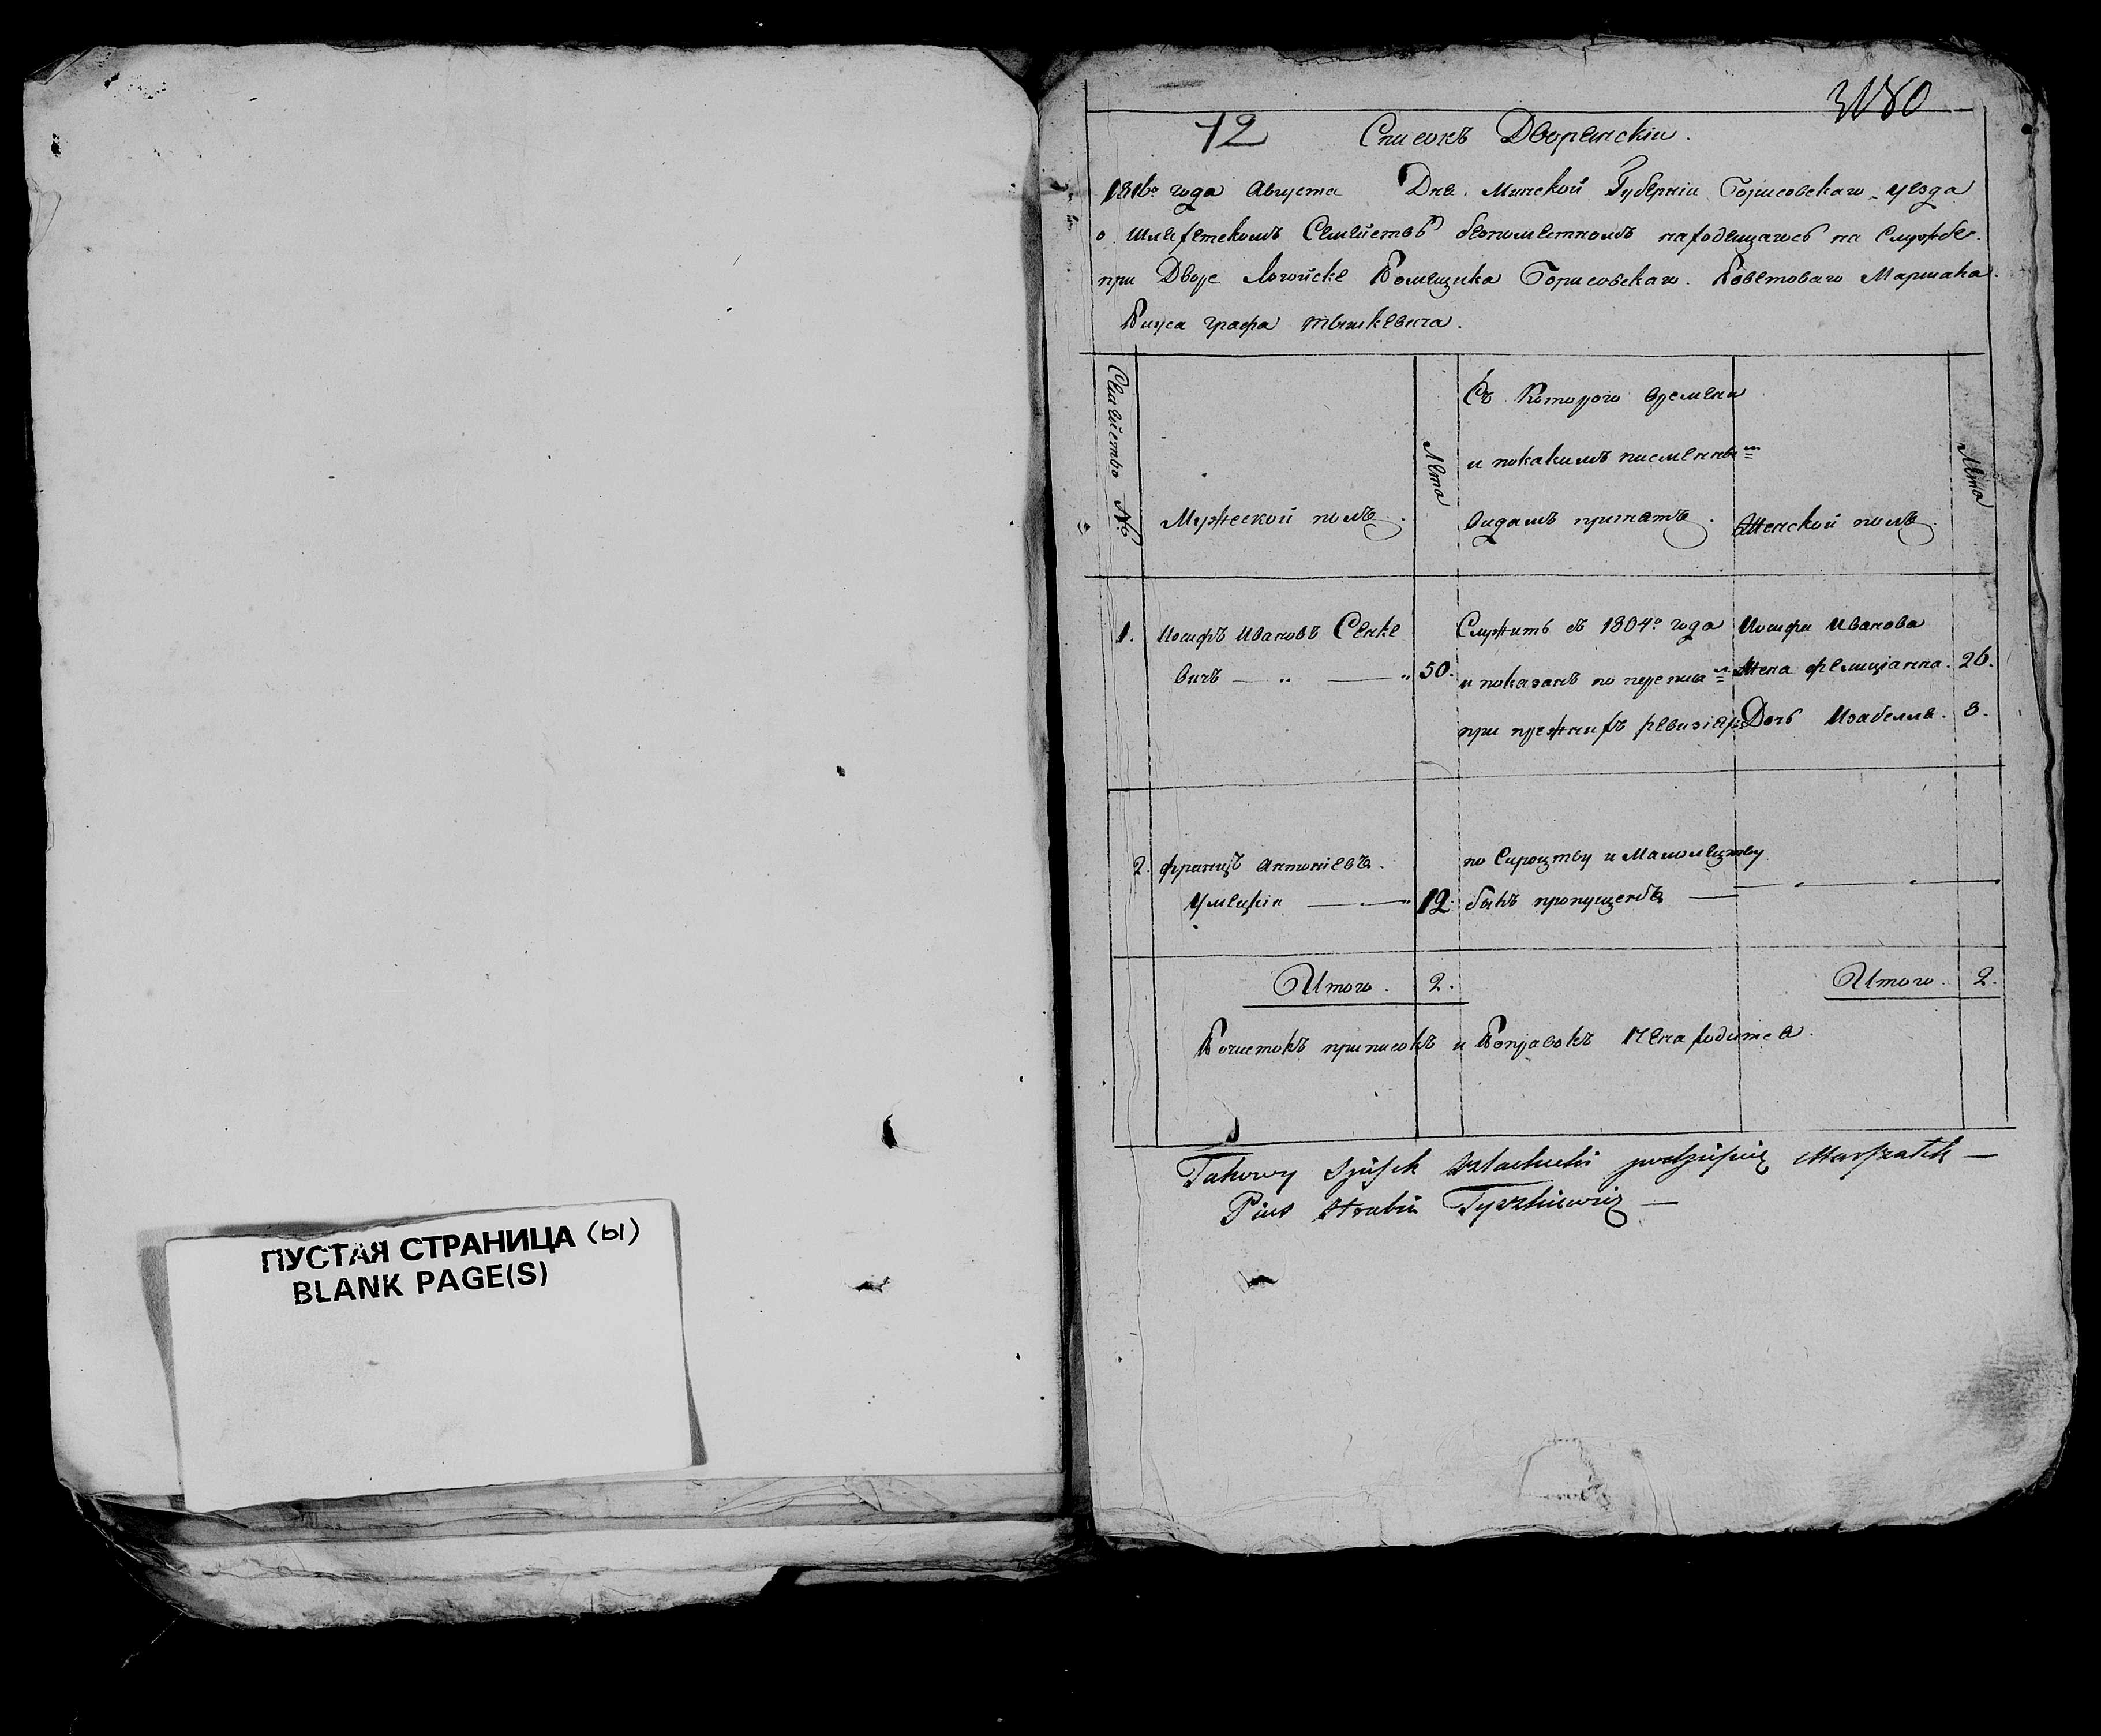 ПУСТАЯ СТРАНИЦА (ы)
BLANK PAGE(S)
12 Списокъ Дворянскіи.
1816го года Августа Дня. Минской Губерніи Борисовскаго уезда
о шляхетскомъ Семействѣ безпоместномъ находящагось на Службе.
при Дворе Логойске Помещика Борисовскаго. Поветоваго Маршала.
Пиуса графа тышкевича.
Семейство №.
Мужеской полъ.
Лета
Съ Которого времени
и покакимъ писменны=
видамъ принятъ.
Женской полъ.
Лета
1. Иосифъ Ивановъ Сенке
вичъ — „ — „ 50.
Служитъ съ 1804го года
и показанъ по переписи
при прежнихъ ревизіяхъ
Иосифа Иванова
Жена Фелиціанна. 26.
Дочь Изабелла. 8.
2. Францъ Антоніевъ.
Умецкіи — 12.
по Сироцтву и Малолецтву
былъ пропущенъ —
Итого. 2. Итого. 2.
Почистокъ приписокъ и Поправокъ Ненаходится.
Takowy Spisek Szlachecki podpisuię Marszałek —
Pius Hrabia Tyszkiewicz —